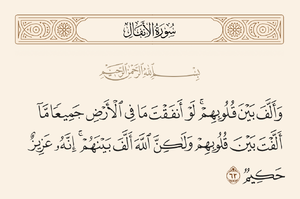 سُورَةُ الأَنفَالِ
بِسْمِ اللَّهِ الرَّحْمَنِ الرَّحِيمِ
وَأَلَّفَ بَيْنَ قُلُوبِهِمْ ۚ لَوْ أَنفَقْتَ مَا فِي الْأَرْضِ جَمِيعًا مَّا
أَلَّفْتَ بَيْنَ قُلُوبِهِمْ وَلَٰكِنَّ اللَّهَ أَلَّفَ بَيْنَهُمْ ۚ إِنَّهُ ۥ عَزِيزٌ
حَكِيمٌ ٦٣